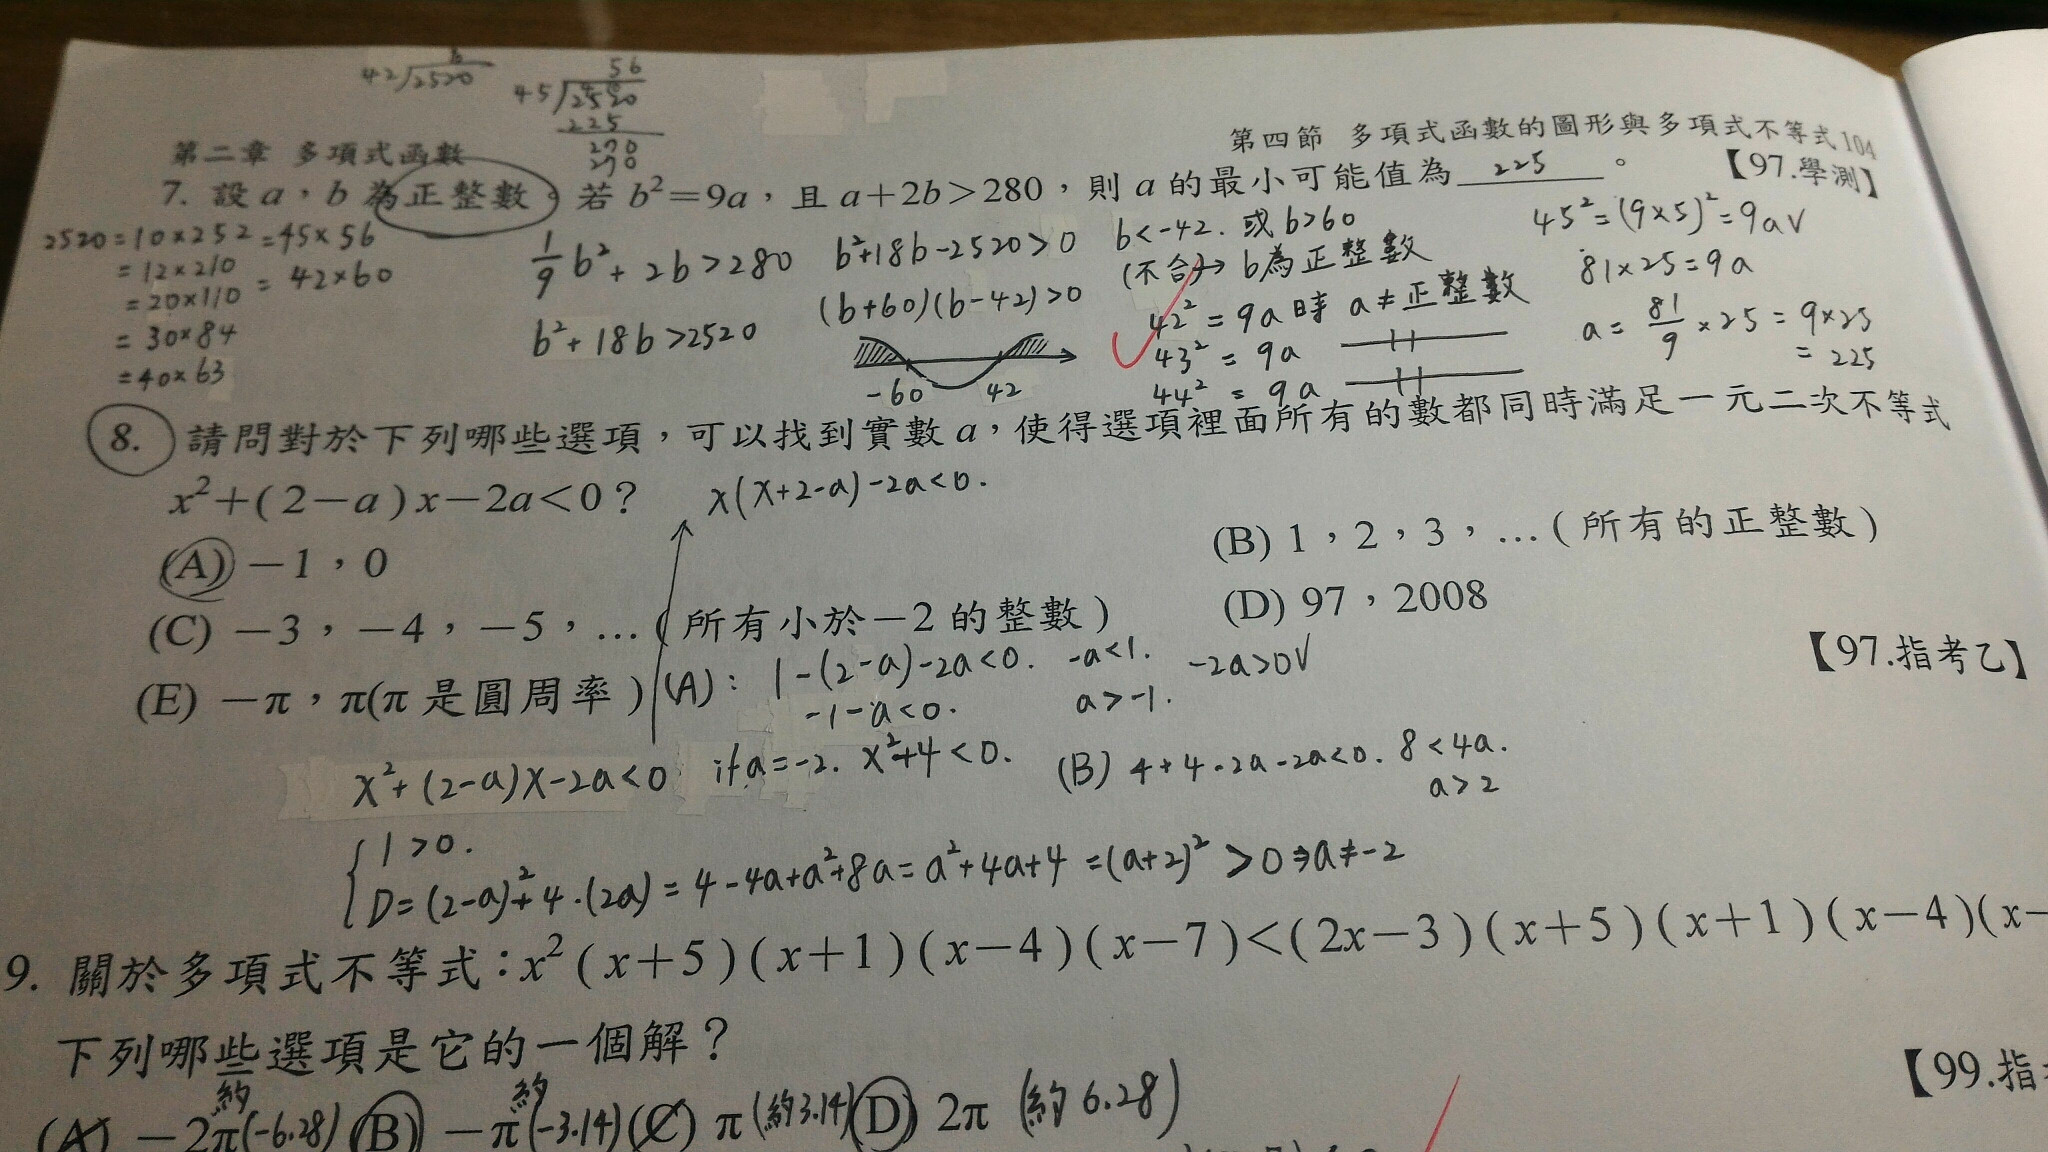 42/2520
56
45/2520
225
270
270
第二章 多項式函數
第四節 多項式函數的圖形與多項式不等式 104
7. 設 a，b 為正整數，若 b²=9a，且 a+2b>280，則 a 的最小可能值為 225 。 【97.學測】
2520=10×252=45×56
=12×210 = 42×60
=20×110
=30×84
=40×63
1/9 b²+2b>280
b²+18b>2520
b²+18b-2520>0
(b+60)(b-42)>0
-60 42
b<-42. 或 b>60
(不合)→ b為正整數
42²=9a時 a≠正整數
43²=9a
44²=9a
45²=(9×5)²=9a√
81×25=9a
a=81/9×25=9×25
=225
8. 請問對於下列哪些選項，可以找到實數 a，使得選項裡面所有的數都同時滿足一元二次不等式
x²+(2-a)x-2a<0？ x(x+2-a)-2a<0.
(A) -1，0 (B) 1，2，3，…(所有的正整數)
(C) -3，-4，-5，…(所有小於-2的整數) (D) 97，2008
(E) -π，π(π是圓周率) 【97.指考乙】
(A): 1-(2-a)-2a<0. -a<1. -2a>0√
-1-a<0. a>-1.
x²+(2-a)x-2a<0 if a=-2. x²+4<0. (B) 4+4-2a-2a<0. 8<4a.
a>2
1>0.
D=(2-a)²+4·(2a)=4-4a+a²+8a=a²+4a+4=(a+2)²>0⇒a≠-2
9. 關於多項式不等式：x²(x+5)(x+1)(x-4)(x-7)<(2x-3)(x+5)(x+1)(x-4)(x-
下列哪些選項是它的一個解？ 【99.指
(A) -2π約(-6.28) (B) -π約(-3.14) (C) π(約3.14) (D) 2π (約6.28)